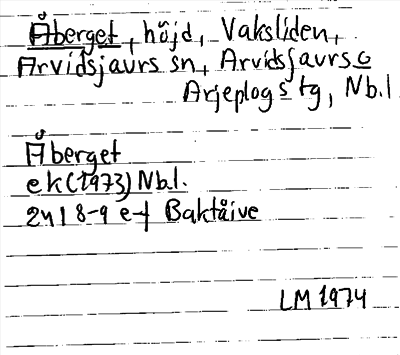 Åberget, höjd, Vaksliden,
Arvidsjaurs sn, Arvidsjaurs o
Arjeplogs tg, Nb.l
Åberget
ek(1973)Nbl.
24I 8-9 e-f Baktåive
LM 1974